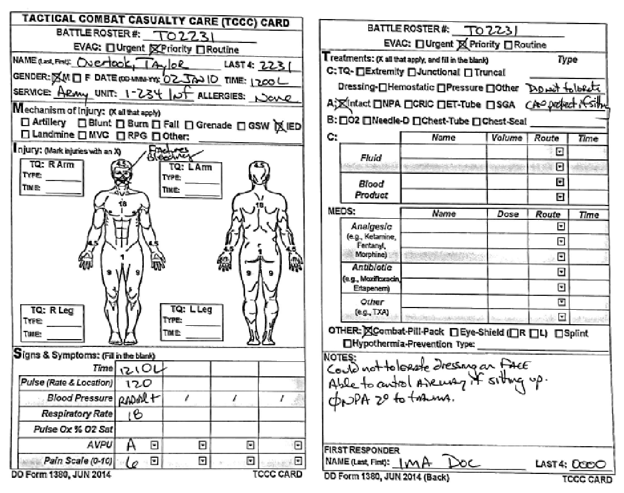 TACTICAL COMBAT CASUALTY CARE (TCCC) CARD
BATTLE ROSTER #: TO2231
EVAC: Urgent Priority Routine
NAME (Last, First): Overlook, Taylor LAST 4: 2231
GENDER: M F DATE (DD-MMM-YY): 02 JAN 10 TIME: 1200L
SERVICE: Army UNIT: 1-234 Inf ALLERGIES: None
Mechanism of Injury: (X all that apply)
Artillery Blunt Burn Fall Grenade GSW IED
Landmine MVC RPG Other:
Injury: (Mark injuries with an X)
Fractures
Bleeding
TQ: R Arm
TYPE:
TIME:
TQ: L Arm
TYPE:
TIME:
18
4.5 4.5 4.5 4.5
1 1
9 9 9 9
TQ: R Leg
TYPE:
TIME:
TQ: L Leg
TYPE:
TIME:
Signs & Symptoms: (Fill in the blank)
Time 1210L
Pulse (Rate & Location) 120
Blood Pressure RADIAL+ / / /
Respiratory Rate 18
Pulse Ox % O2 Sat
AVPU A
Pain Scale (0-10) 6
DD Form 1380, JUN 2014 TCCC CARD
BATTLE ROSTER #: TO2231
EVAC: Urgent Priority Routine
Treatments: (X all that apply, and fill in the blank) Type
C: TQ- Extremity Junctional Truncal
Dressing- Hemostatic Pressure Other Did not tolerate
A: Intact NPA CRIC ET-Tube SGA can protect if sitting
B: O2 Needle-D Chest-Tube Chest-Seal
C:
Name Volume Route Time
Fluid
Blood
Product
MEDS:
Name Dose Route Time
Analgesic
(e.g., Ketamine,
Fentanyl,
Morphine)
Antibiotic
(e.g., Moxifloxacin,
Ertapenem)
Other
(e.g., TXA)
OTHER: Combat-Pill-Pack Eye-Shield (R L) Splint
Hypothermia-Prevention Type:
NOTES:
Could not tolerate dressing on FACE
Able to control Airway if sitting up.
∅ NPA 2° to trauma.
FIRST RESPONDER
NAME (Last, First): IMA DOC LAST 4: 0000
DD Form 1380, JUN 2014 (Back) TCCC CARD